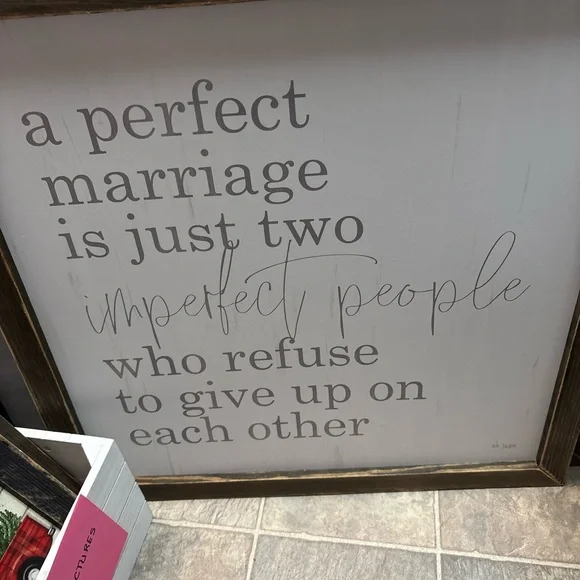 a perfect
marriage
is just two
imperfect people
who refuse
to give up on
each other
CTURES